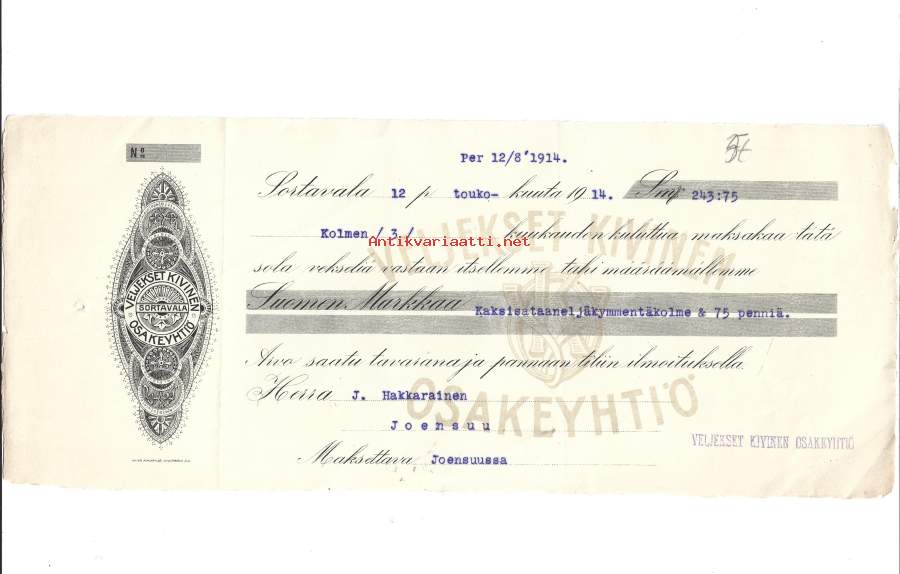 Nº
Per 12/8'1914.
Sortavala 12 p touko- kuuta 1914. Smk 243:75
Kolmen /3/ kuukauden kuluttua maksakaa tätä
Antikvariaatti.net
sola vekseliä vastaan itsellemme tahi määräämällemme
Suomen Markkaa Kaksisataaneljäkymmentäkolme & 75 penniä.
Arvo saatu tavarana ja pannaan tiliin ilmoituksella.
Herra J. Hakkarainen
Joensuu
Maksettava Joensuussa
VELJEKSET KIVINEN OSAKEYHTIÖ
VELJEKSET KIVINEN
SORTAVALA
OSAKEYHTIÖ
VELJEKSET KIVINEN
OSAKEYHTIÖ